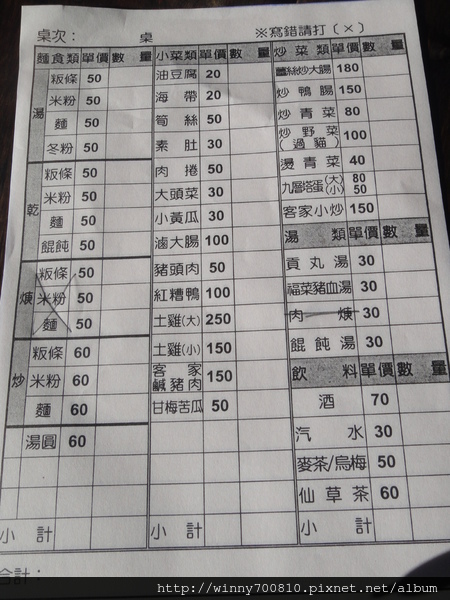 桌次： 桌 ※寫錯請打（×）
麵食類 單價 數量
湯
粄條 50
米粉 50
麵 50
冬粉 50
乾
粄條 50
米粉 50
麵 50
餛飩 50
焿
粄條 50
米粉 50
麵 50
炒
粄條 60
米粉 60
麵 60
湯圓 60
小計
小菜類 單價 數量
油豆腐 20
海帶 20
筍絲 50
素肚 30
肉捲 50
大頭菜 30
小黃瓜 30
滷大腸 100
豬頭肉 50
紅糟鴨 100
土雞(大) 250
土雞(小) 150
客家鹹豬肉 150
甘梅苦瓜 50
小計
炒菜類 單價 數量
薑絲炒大腸 180
炒鴨腸 150
炒青菜 80
炒野菜(過貓) 100
燙青菜 40
九層塔蛋(大) 80
(小) 50
客家小炒 150
湯類 單價 數量
貢丸湯 30
福菜豬血湯 30
肉焿 30
餛飩湯 30
飲料 單價 數量
酒 70
汽水 30
麥茶/烏梅 50
仙草茶 60
小計
合計：
http://winny700810.pixnet.net/album